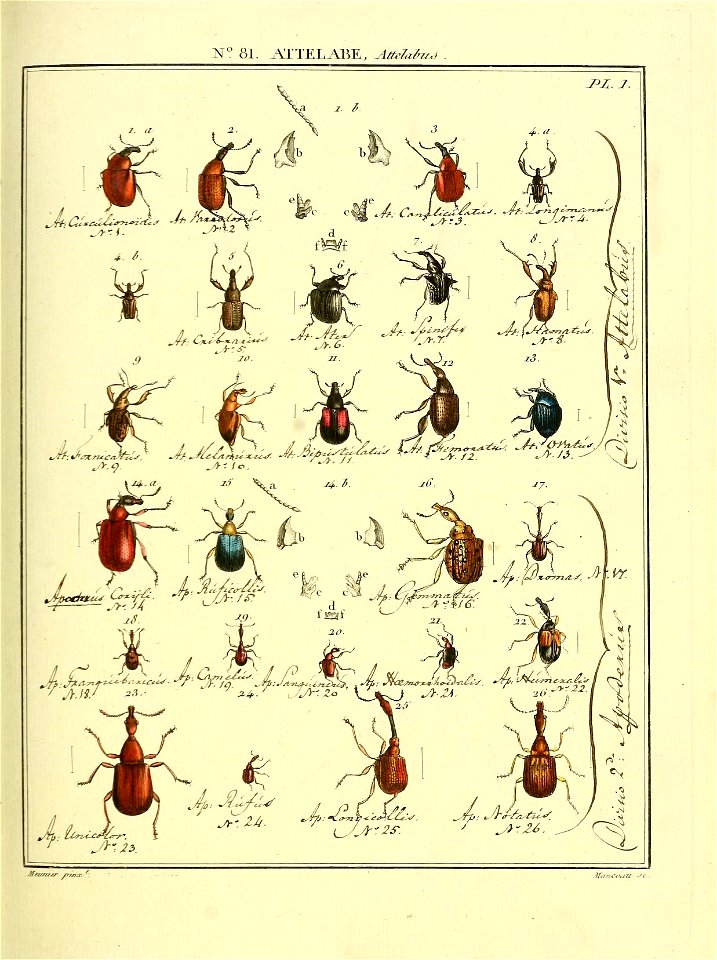 N.º 81. ATTELABE, Attelabus.
PL. 1.
a 1. b.
1. a 2. b b 3 4. a.
e c c e
At. Curculionoides At. At. Canaliculatus. At. Longimanus
Nº 1. Nº 2 Nº 3. Nº 4.
d
f f
4. b. 5 6 7. 8.
At. Cribrarius At. Ater At. Spinifex At. Hamatus.
Nº 5. N. 6. N. 7. Nº 8.
9 10. 11. 12 13.
At. Fornicatus. At. Melanurus. At. Bipustulatus At. Femoratus. At. Ovatus.
N. 9. Nº 10. N. 11. N. 12. N. 13.
Divisio Attelabus
14. a 15 a 14. b. 16. 17.
b b
e c c e
Coryli. Ap: Ruficollis. Ap: Gemmatus. Ap: Dromas. Nº 17.
Nº 14 Nº 15 Nº 16.
d
f f
18. 19. 20. 21. 22
Ap: Franquebaricus. Ap: Camelus. Ap: Sanguineus. Ap: Hæmorrhoidalis. Ap: Humeralis
N. 18. N. 19. Nº 20 N. 21. Nº 22.
23. 24. 25 26.
Ap: Unicolor. Ap: Rufus Ap: Longicollis. Ap: Notatus.
Nº 23 Nº 24. Nº 25. Nº 26.
Divisio 2ª Apoderus
Meunier pinx.t
sc.